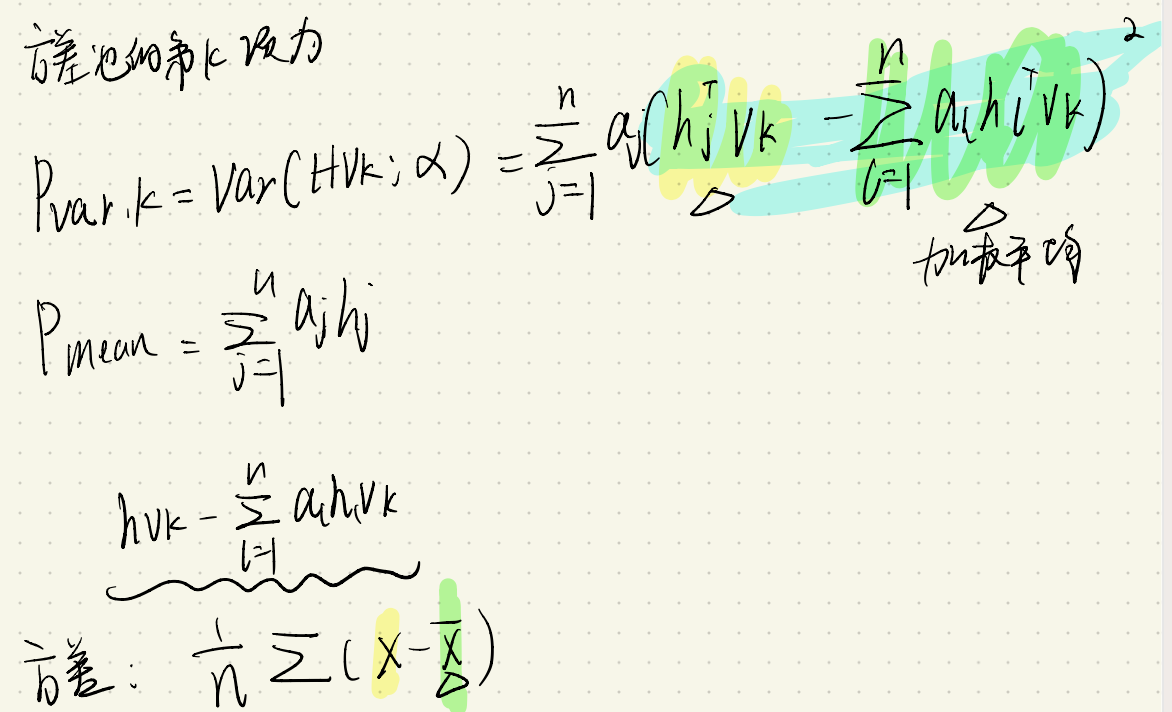 方差池的第k项为
P_{var,k} = Var(HV_k; α) = \sum_{j=1}^{n} a_j(h_j^T V_k - \sum_{i=1}^{n} a_i h_i^T V_k)^2
加权平均
P_{mean} = \sum_{j=1}^{n} a_j h_j
hV_k - \sum_{i=1}^{n} a_i h_i V_k
方差: \frac{1}{n} \sum (x - \overline{x})